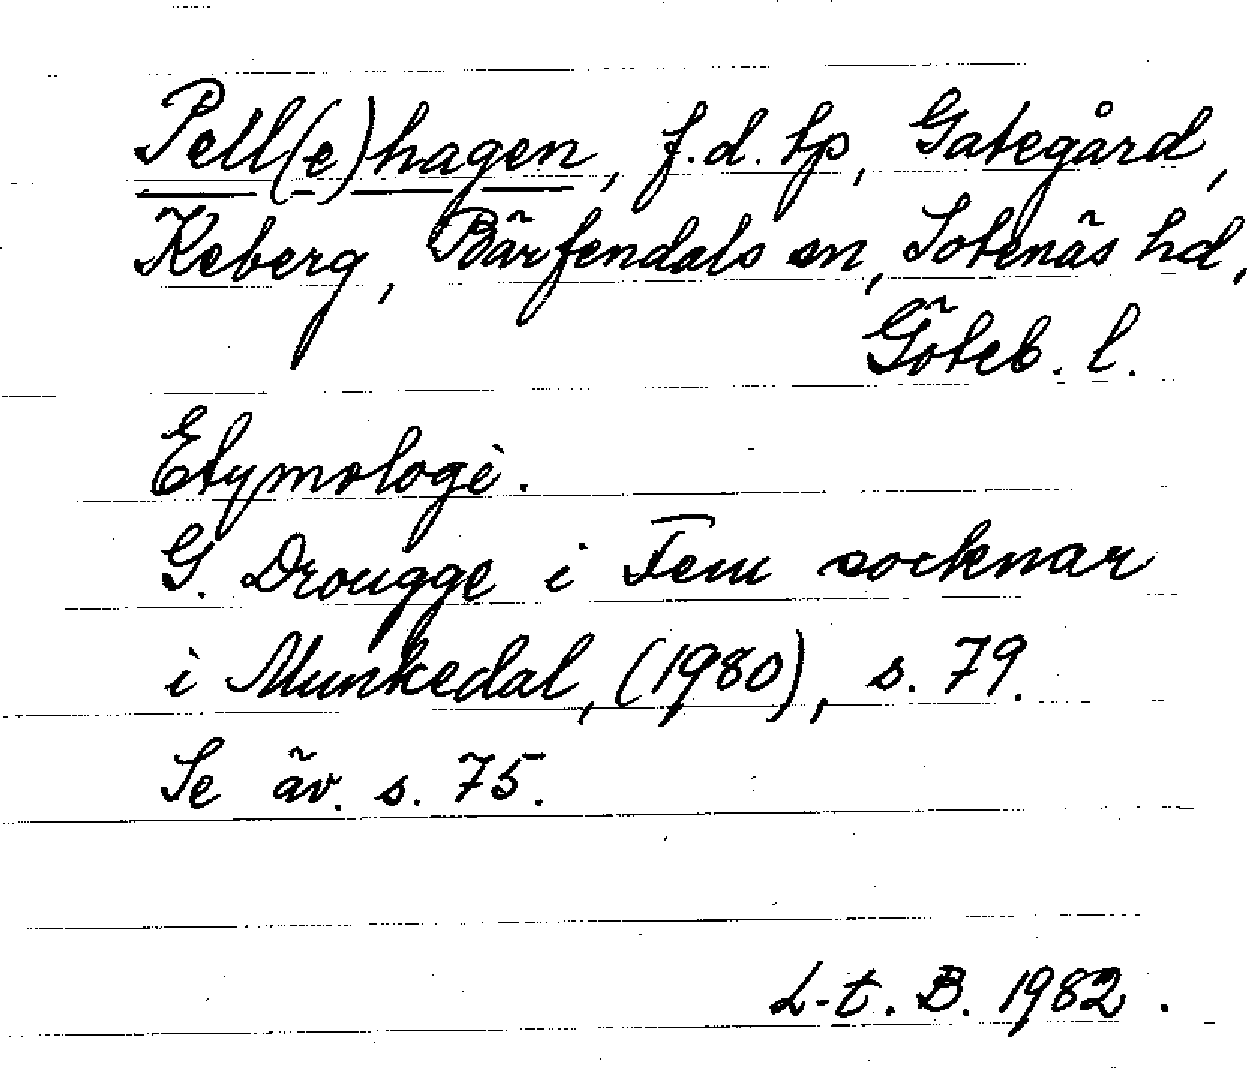 Pell(e)hagen, f.d. tp, Gategård,
Keberg, Bärfendals sn, Sotenäs hd,
Göteb. l.
Etymologi.
G. Drougge i Fem socknar
i Munkedal, (1980), s. 79.
Se äv. s. 75.
L-t. B. 1982.